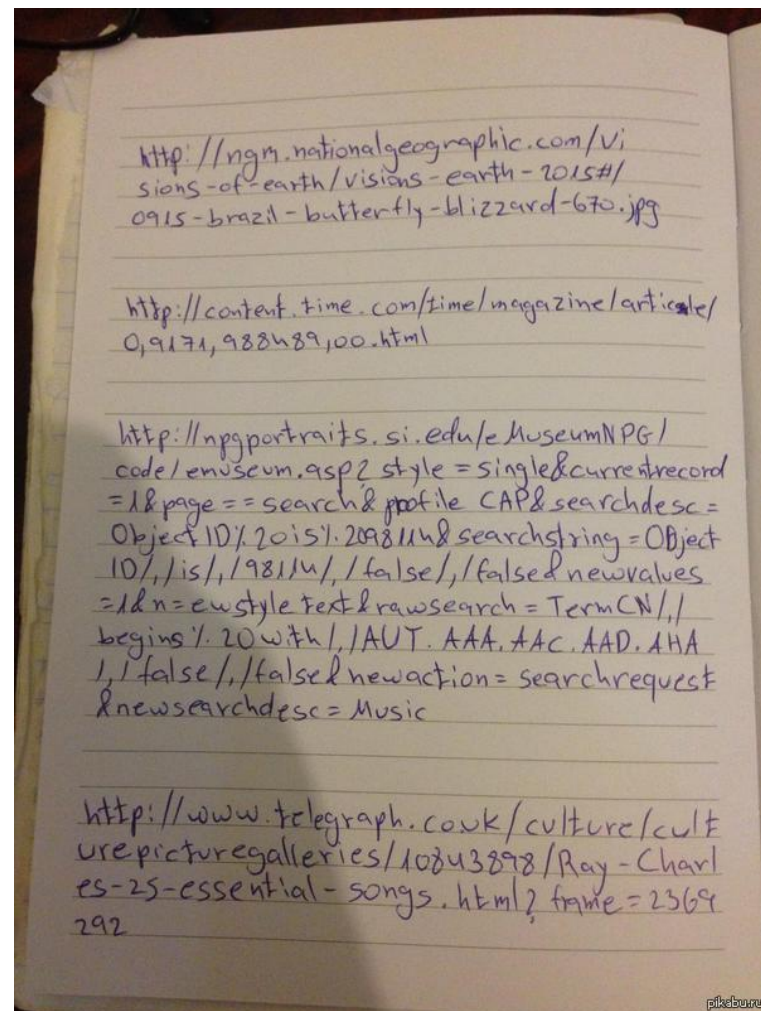 http://ngm.nationalgeographic.com/vi
sions-of-earth/visions-earth-2015#/
0915-brazil-butterfly-blizzard-670.jpg
http://content.time.com/time/magazine/article/
0,9171,988489,00.html
http://npgportraits.si.edu/eMuseumNPG/
code/emuseum.asp?style=single&currentrecord
=1&page==search&profile CAP&searchdesc=
Object ID%20is%2098114&searchstring=OBject
ID/,/is/,/98114/,/false/,/false&newvalues
=1&n=ewstyle text&rawsearch=TermCN/,/
begins%20with/,/AUT.AAA.AAC.AAD.AHA
/,/false/,/false&newaction=searchrequest
&newsearchdesc=Music
http://www.telegraph.couk/culture/cult
urepicturegalleries/10843898/Ray-Charl
es-25-essential-songs.html?frame=2369
292
pikabu.ru